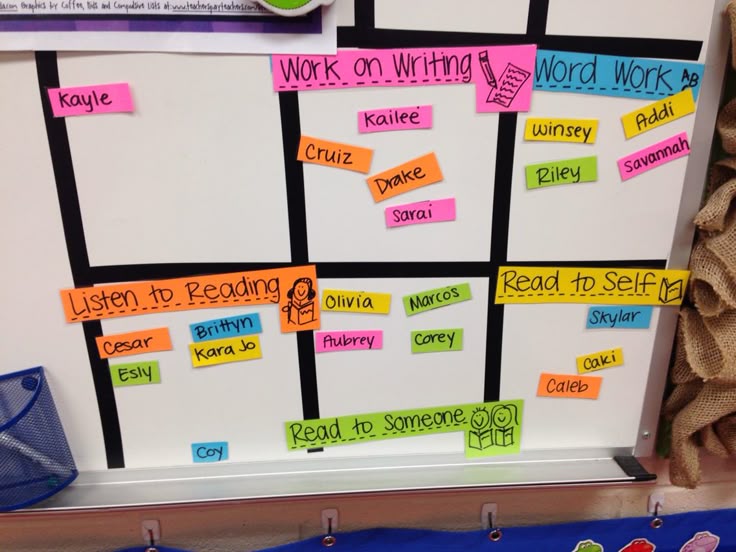 Graphics by Coffee, Kids and Compulsive Lists at: www.teacherspayteachers.com
Work on Writing
Word Work AB
Kayle
Kailee
Cruiz
Drake
Sarai
Winsey
Addi
Riley
Savannah
Listen to Reading
Read to Self
Cesar
Brittyn
Kara Jo
Esly
Coy
Olivia
Marcos
Aubrey
Corey
Skylar
Caki
Caleb
Read to Someone